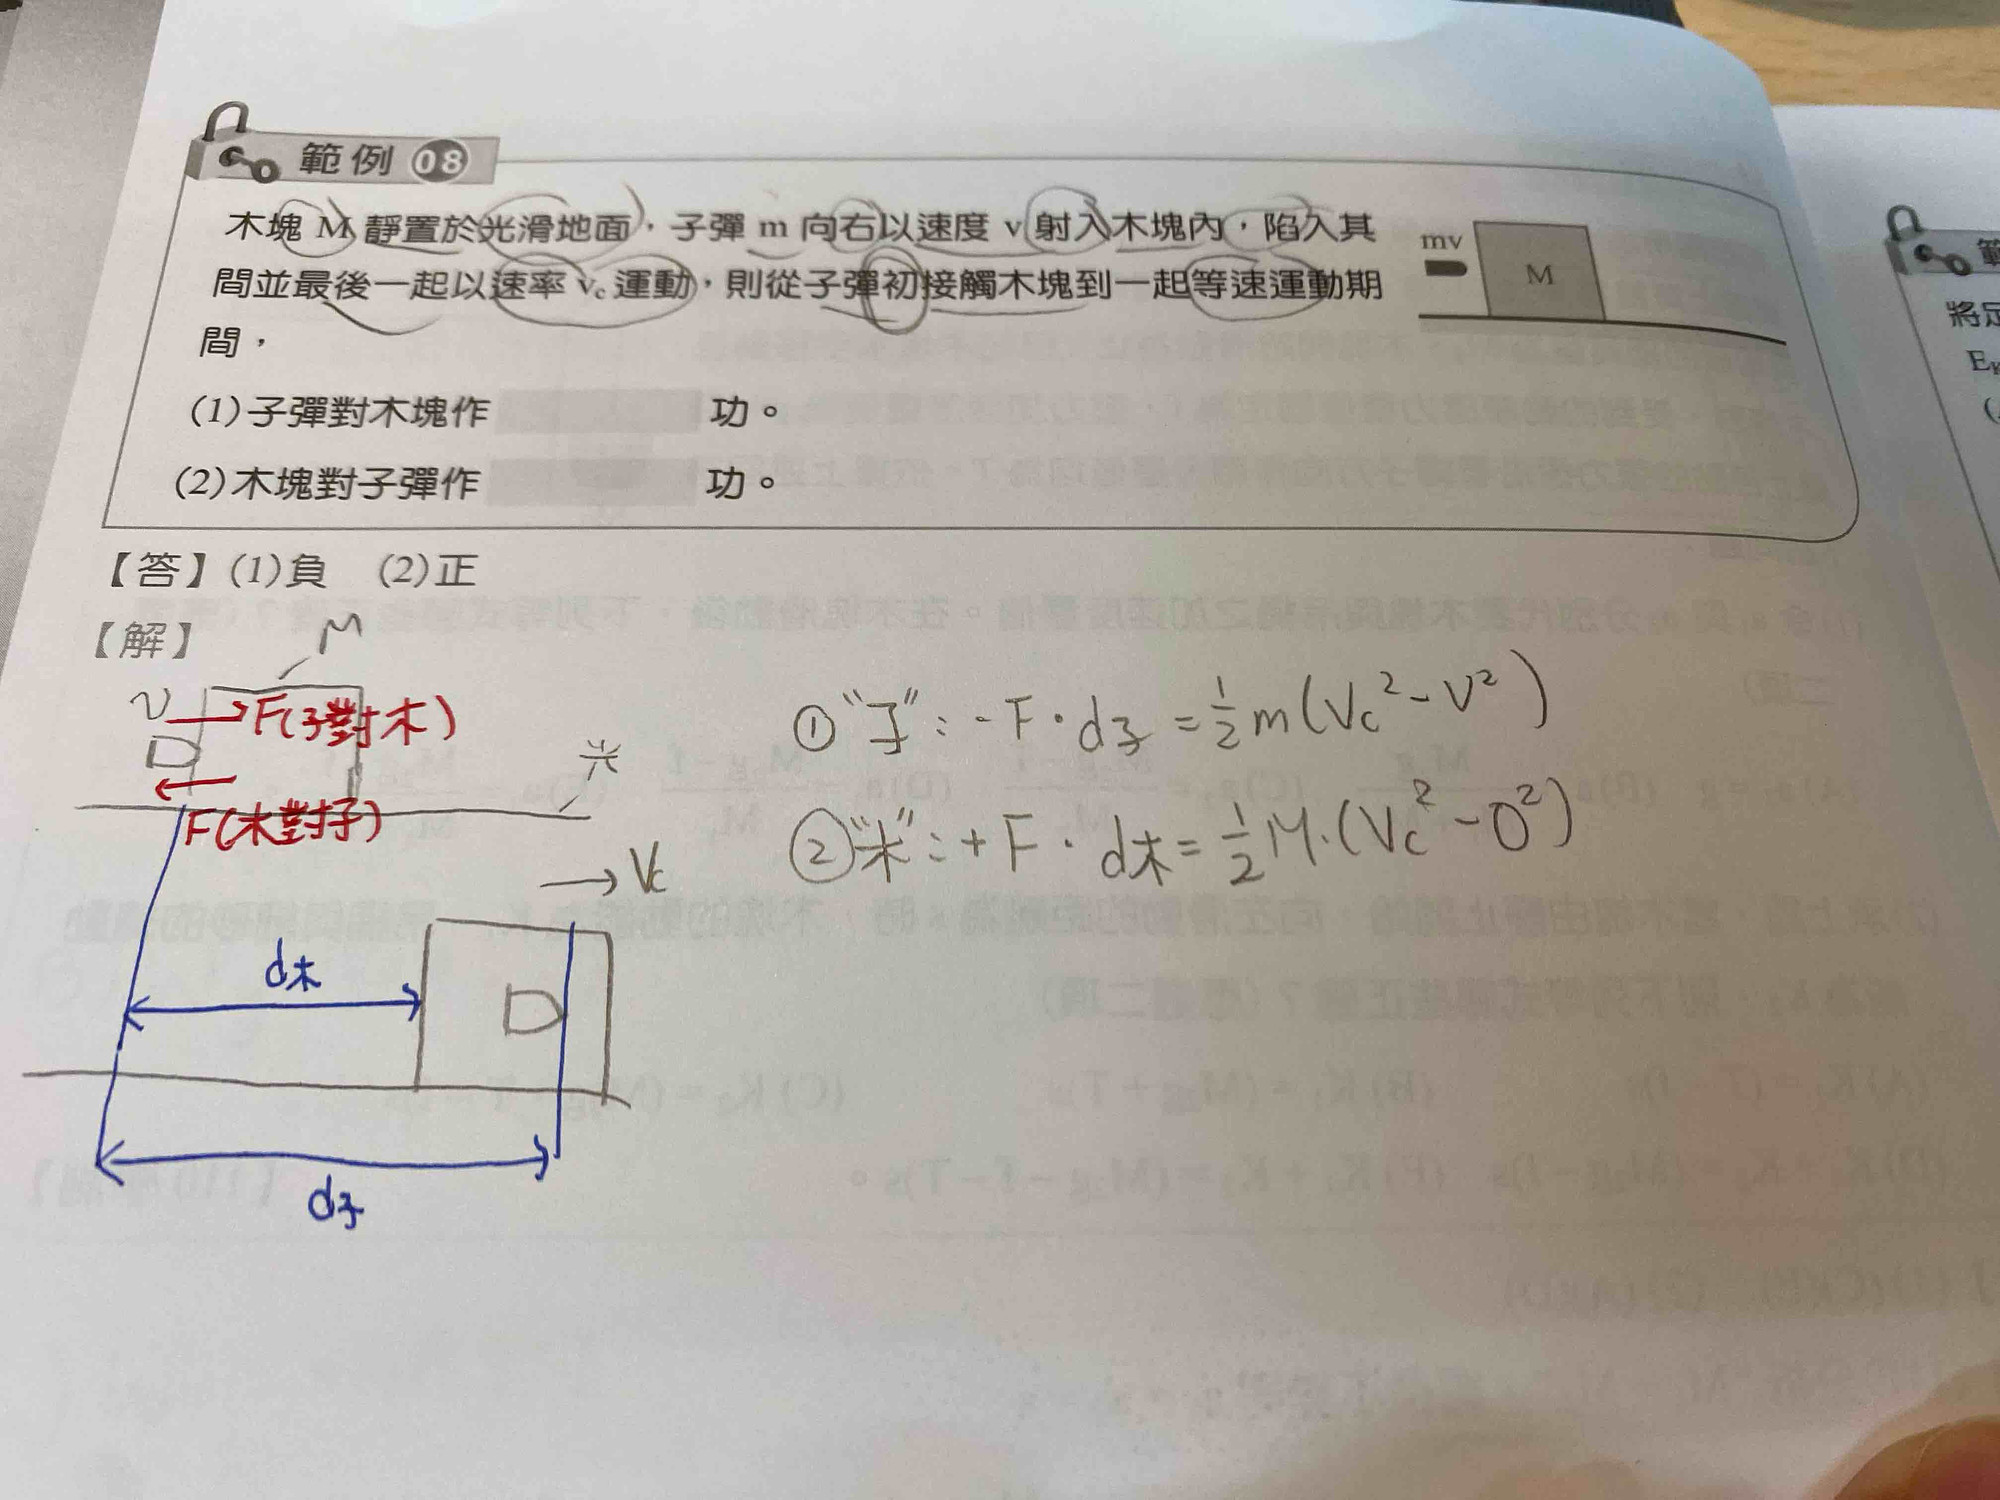 範例 08
木塊 M 靜置於光滑地面，子彈 m 向右以速度 v 射入木塊內，陷入其
間並最後一起以速率 vc 運動，則從子彈初接觸木塊到一起等速運動期
間，
mv
M
(1)子彈對木塊作 功。
(2)木塊對子彈作 功。
【答】(1)負 (2)正
【解】
M
v
F(子對木)
F(木對子)
光
Vc
d木
d子
① "子"：-F・d子 = 1/2 m(Vc² - V²)
② "木"：+F・d木 = 1/2 M・(Vc² - 0²)
將